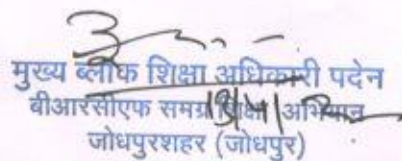 मुख्य ब्लॉक शिक्षा अधिकारी पदेन
बीआरसीएफ समग्र शिक्षा अभियान
जोधपुरशहर (जोधपुर)